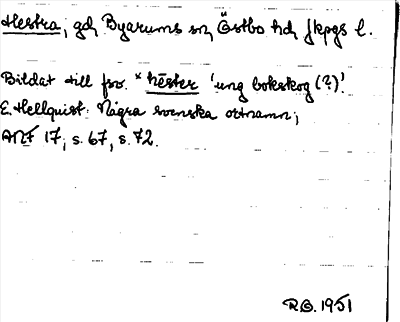 Hestra, gd, Byarums sn, Östbo hd, Jkpgs l.
Bildat till fsv. * hēster 'ung bokskog (?)'.
E. Hellquist: Några svenska ortnamn;
ANF 17, s. 67, s. 72.
R.G. 1951